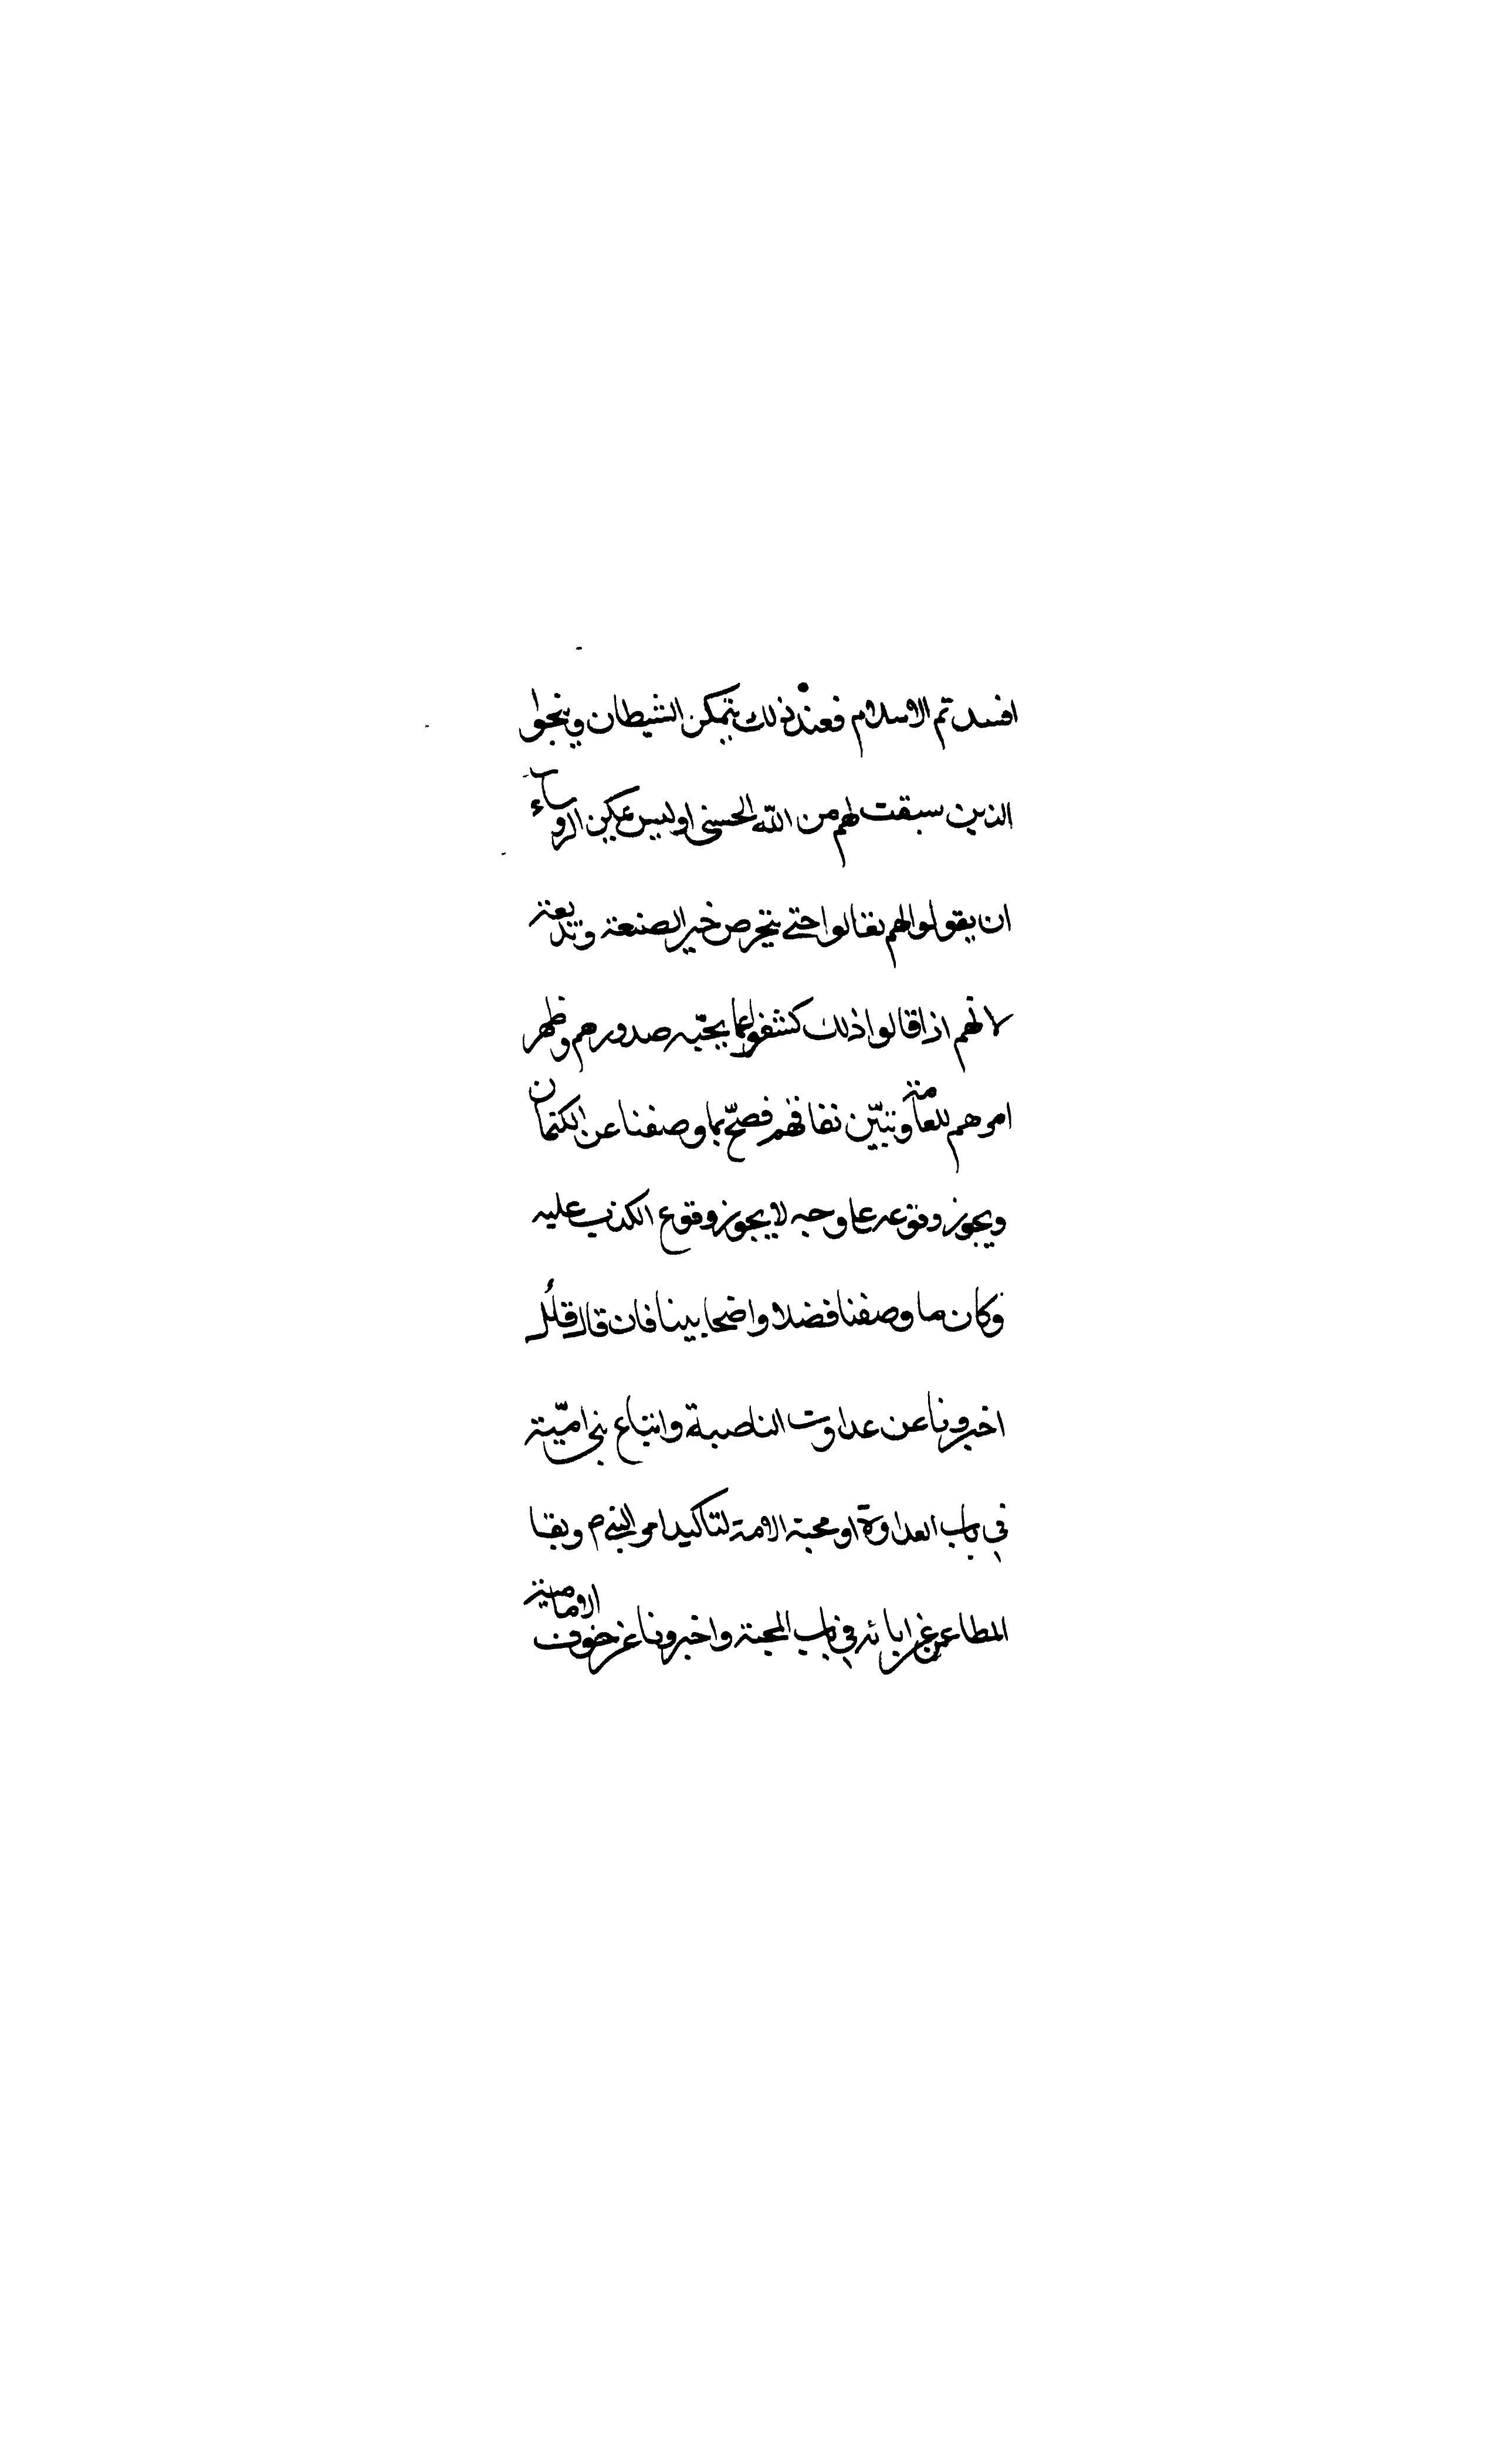 افسدتم الاسلام فعند ذلك يتمكن الشيطان وينجوا
الذين سبقت لهم من الله الحسنى اوليس يمكن الروساء
ان يقولوا لهم نقالوا حتى يتخرص خبر الصنعة وتذيعة
لانهم اذا قالوا ذلك كشفوا عما يجنّه صدورهم وظهر
امرهم للعامة وتبيّن نفاقهم فصحّ بما وصفنا عن الكتمان
ويجوز وقوعه على وجه لا يجوز وقوع الكذب عليه
وكان ما وصفنا فضلا واضحا بينا فان قال قائل
اخبرونا عن عداوت الناصبة واتباع بني اميّة
في باب العداوة او محبة الامة لتاكيد امر النبي م وبقا
المطاعن عن ابائه في باب المحبة واخبرونا عن خوف الامامية